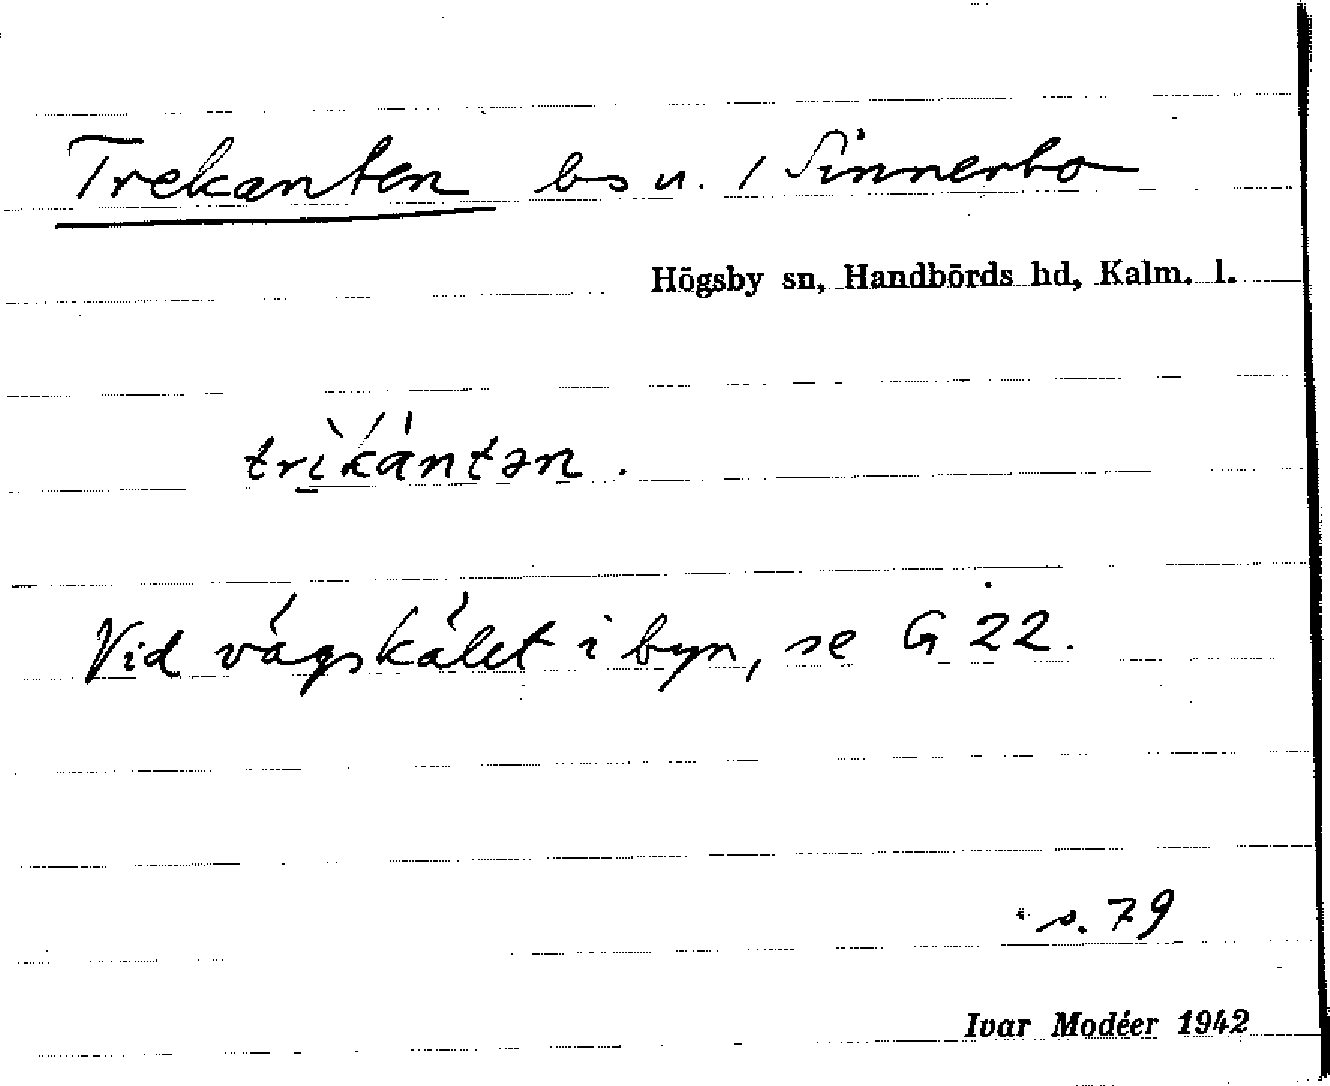 Trekanten bs u. / Sinnerbo
Högsby sn, Handbörds hd, Kalm. l.
trìkántən.
Vid vägskälet i byn, se G 22.
s. 79
Ivar Modéer 1942